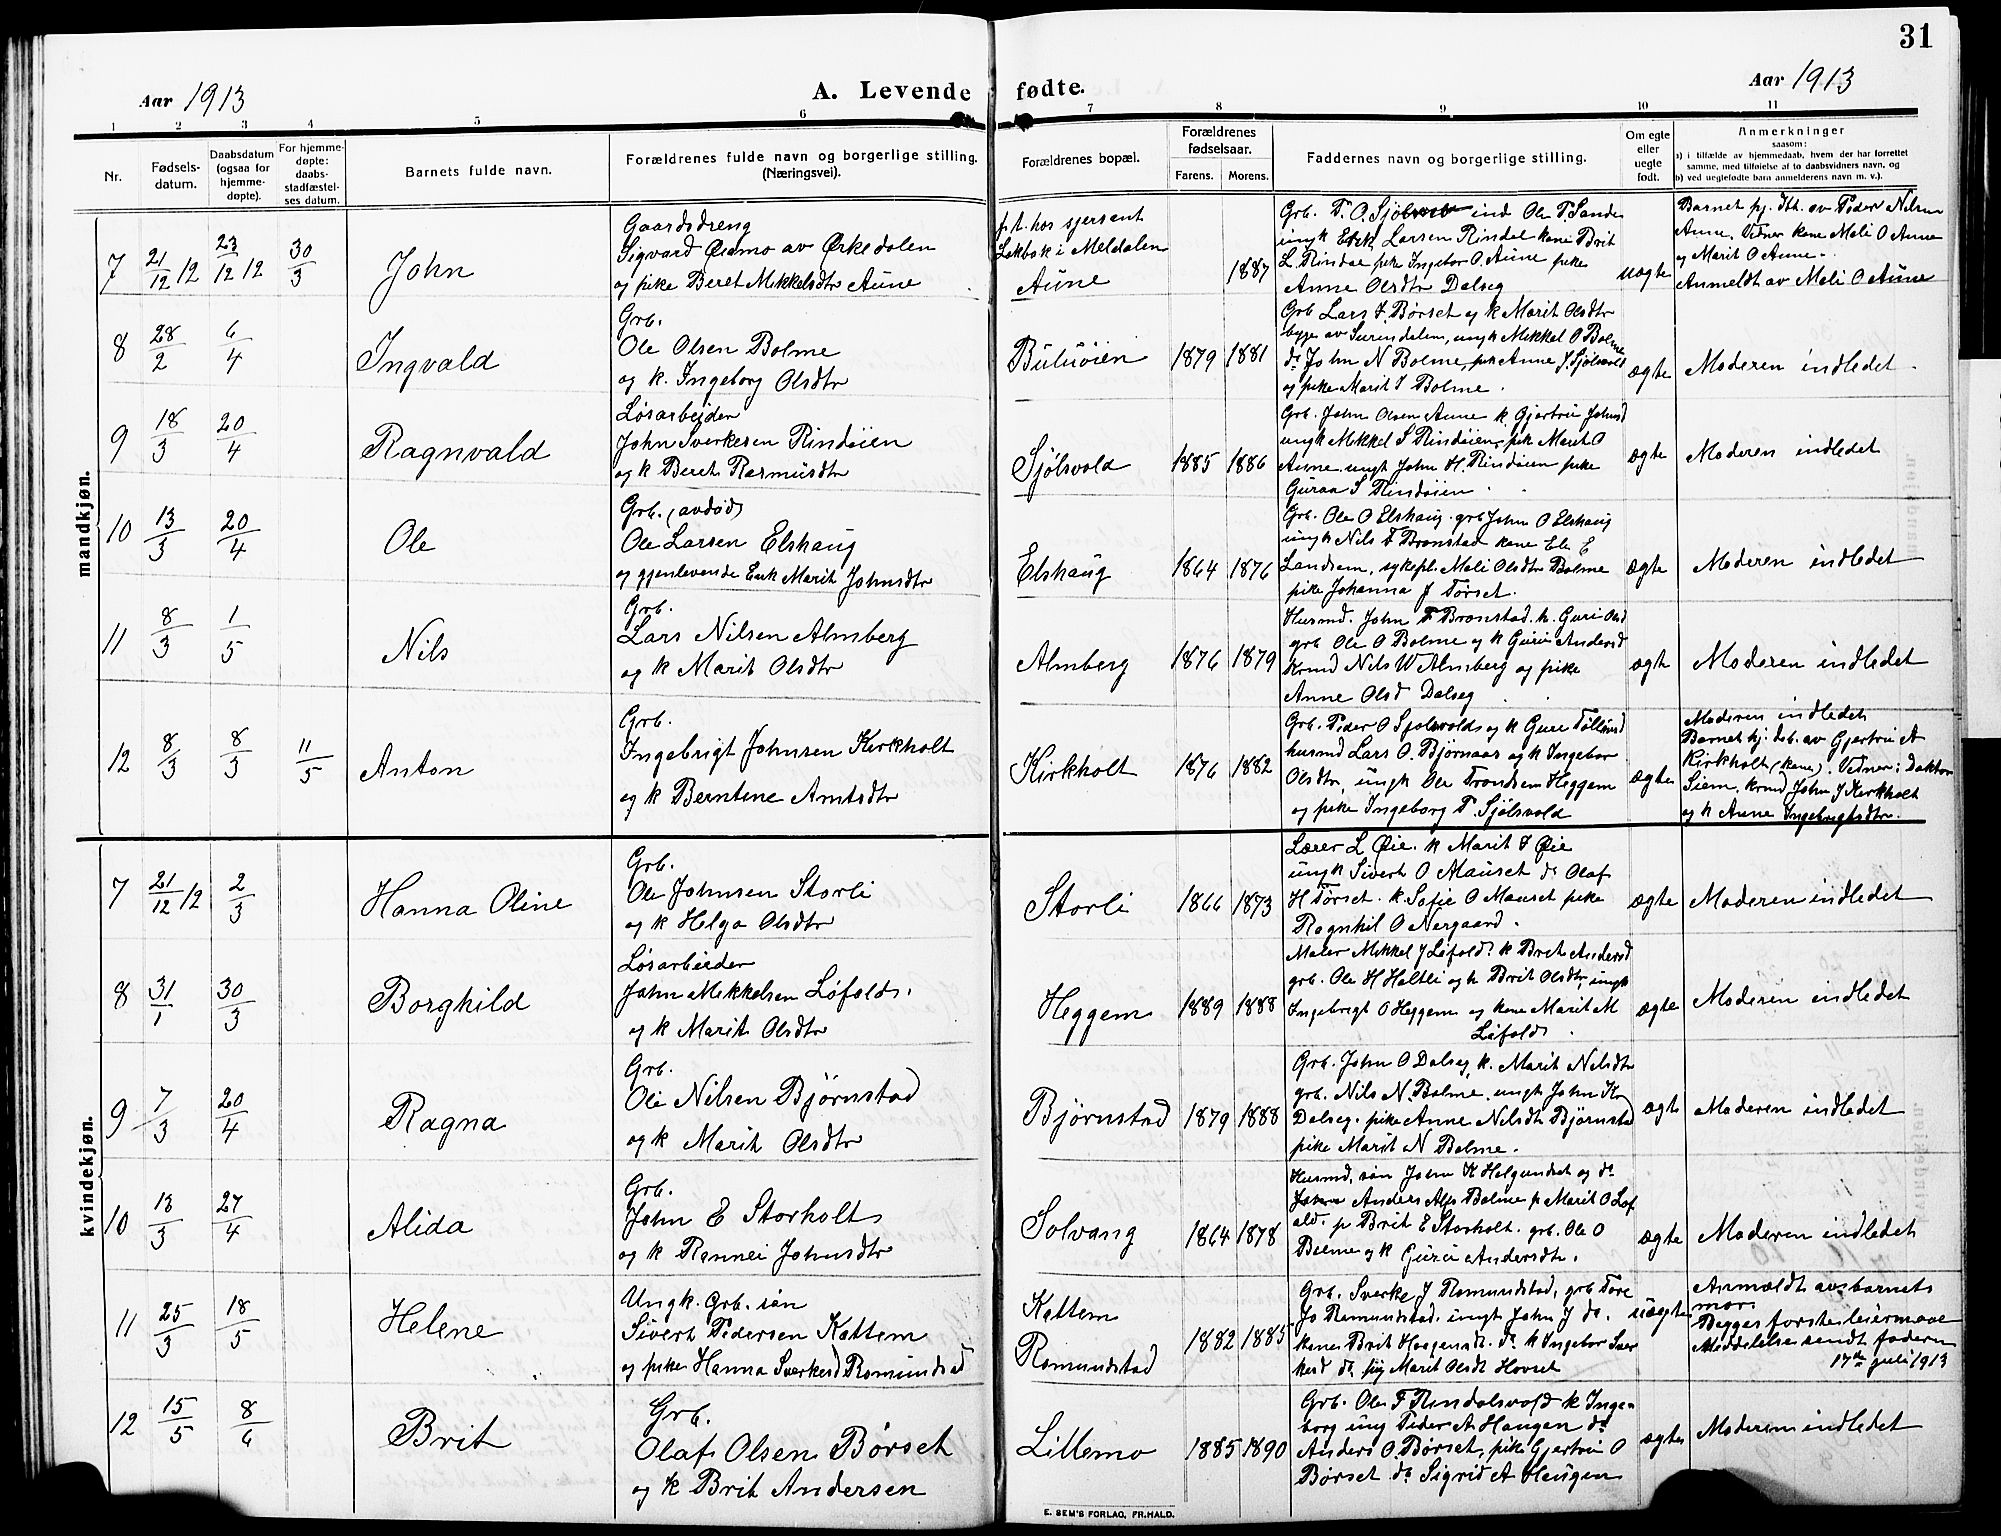 31
Aar 1913
A. Levende fødte.
Aar 1913
1 2 3 4 5 6 7 8 9 10 11
Nr.
Fødsels-
datum.
Daabsdatum
(ogsaa for
hjemme-
døpte).
For hjemme-
døpte:
daabs-
stadfæstel-
ses datum.
Barnets fulde navn.
Forældrenes fulde navn og borgerlige stilling.
(Næringsvei).
Forældrenes bopæl.
Forældrenes
fødselsaar.
Farens. Morens.
Faddernes navn og borgerlige stilling.
Om egte
eller
uegte
født.
Anmerkninger
saasom:
a) i tilfælde av hjemmedaab, hvem der har forrettet
samme, med tilføielse af to daabsvidners navn, og
b) ved uegtefødte barn anmelderens navn m. v.).
mandkjøn.
7 21/12 12 23/12 12 30/3 John
Gaardsdreng
Sigvard Øiamo av Ørkedalen
og pike Beret Mikkelsdtr Aune
p. t. hos sjersent
Løkbak i Meldalen
Aune
1887
Grb. T. O. ind Ole T. Sande
ungk Erik Larsen Rindal kone Brit
L Rindal pike Ingebor O. Aune pike
Anne Olsdtr Dalseg
uægte
Barnet hj. db. av Peder Nilsen
Aune. Vidner kone Mali O Aune
og Marit O Aune.
Anmeldt av Mali O Aune
8 28/2 6/4 Ingvald
Grb.
Ole Olsen Bolme
og k. Ingeborg Olsdtr
Buluøien
1879 1881
Grb Lars I. Børset og k Marit Olsdtr
begge av Surendalen, ungk Mikkel O Bolme
do John N Bolme, pik Anne J. Sjølsvold
og pike Marit I Bolme.
ægte
Moderen indledet.
9 18/3 20/4 Ragnvald
Løsarbejder
John Sverkesen Rindøien
og k Beret Rasmusdtr
Sjølsvold
1885 1886
Grb. John Olsen Aune k Gjertru Johnsd
ungk Mikkel S Rindøien, pik Marit O
Aune. ungk John H. Rindøien pike
Guraa S Rindøien.
ægte
Moderen indledet
10 13/3 20/4 Ole
Grb. (avdød)
Ole Larsen Elshaug
og gjenlevende Enk Marit Johnsdtr
Elshaug
1864 1876
Grb. Ole O Elshaug. grb John O Elshaug
ungk Nils T Brønstad kone Ele E
Landsem, sykepl. Mali Olsdtr Bolme
pike Johanna J Tørset.
ægte
Moderen indledet
11 8/3 1/5 Nils
Grb.
Lars Nilsen Almberg
og k Marit Olsdtr
Almberg
1876 1879
Husmd. John T Brønstad. k. Guri Olsd
grb Ole O Bolme og k Guru Andersd
krmd Nils W Almberg og pike
Anne Olsd Dalseg
ægte
Moderen indledet
12 8/3 8/3 11/5 Anton
Grb.
Ingebrigt Johnsen Kirkholt
og k Berntine Arntsdtr
Kirkholt
1876 1882
Grb. Peder O Sjølsvold og k Gure
husmd Lars O. Bjørnaas og k Ingebor
Olsdtr, ungk Ole Trondsen Heggem
og pike Ingeborg T. Sjølsvold
ægte
Moderen indledet
Barnet hj. db. av Gjertru A
Kirkholt (kone). Vidner: Doktor
Siem, krmd John J Kirkholt
og k Anne Ingebrigtsdtr.
kvindekjøn.
7 21/12 12 2/3 Hanna Oline
Grb.
Ole Johnsen Storli
og k Helga Olsdtr
Storli
1866 1873
Lærer L Øie. k Marit I Øie
ungk Sivert O Mauset do Olaf
H Tørset. k Sofie O Mauset pike
Ragnhil O Nergaard.
ægte
Moderen indledet
8 31/1 30/3 Borghild
Løsarbeider
John Mikkelsen Løfald.
og k Marit Olsdtr
Heggem
1889 1888
Maler Mikkel J Løfald. k Brit Andersd
grb. Ole H Holtli og k Brit Olsdtr, ungk
Ingebrigt O Heggem og kone Marit M
Løfald.
ægte
Moderen indledet
9 7/3 20/4 Ragna
Grb.
Ole Nilsen Bjørnstad
og k Marit Olsdtr
Bjørnstad
1879 1888
Grb. John O Dalseg, k. Marit Nilsdtr
grb. Nils N. Bolme. ungk John K
Dalseg. pike Anne Nilsdtr Bjørnstad
pike Marit N Bolme.
ægte
Moderen indledet
10 13/3 27/4 Alida
Grb.
John E Storholt
og k Rannei Johnsdtr
Solvang
1864 1878
Husmd. søn John K Helgundset og do
Anders Bolme p Marit O Løf
ald. p Brit E Storholt. grb. Ole O
Bolme og k Guru Andersdtr.
ægte
Moderen indledet
11 25/3 18/5 Helene
Ungk. Grb. søn
Sivert Pedersen Kattem
og pike Hanna Sverkesd Romundstad
Kattem
Romundstad
1882 1885
Grb. Sverke J Romundstad, grb Tore
Jo Romundstad. ungk John J do.
kone Brit Haagensdt. do k Ingebor Sver
kesd do pig Marit Olsdt Hovset
uægte
Anmeldt av barnets
mor.
Begges første leiermaal
Meddelelse sendt faderen
17de juli 1913
12 15/5 8/6 Brit
Grb.
Olaf Olsen Børset
og k Brit Andersen
Lillemo
1885 1890
Grb. Ole F Rindalsvold k Inge-
borg ung Peder A Haugen do
Anders O. Børset, pike Gjertru O
Børset do Sigrid A Haugen
ægte
Moderen indledet
E. SEM'S FORLAG, FR.HALD.